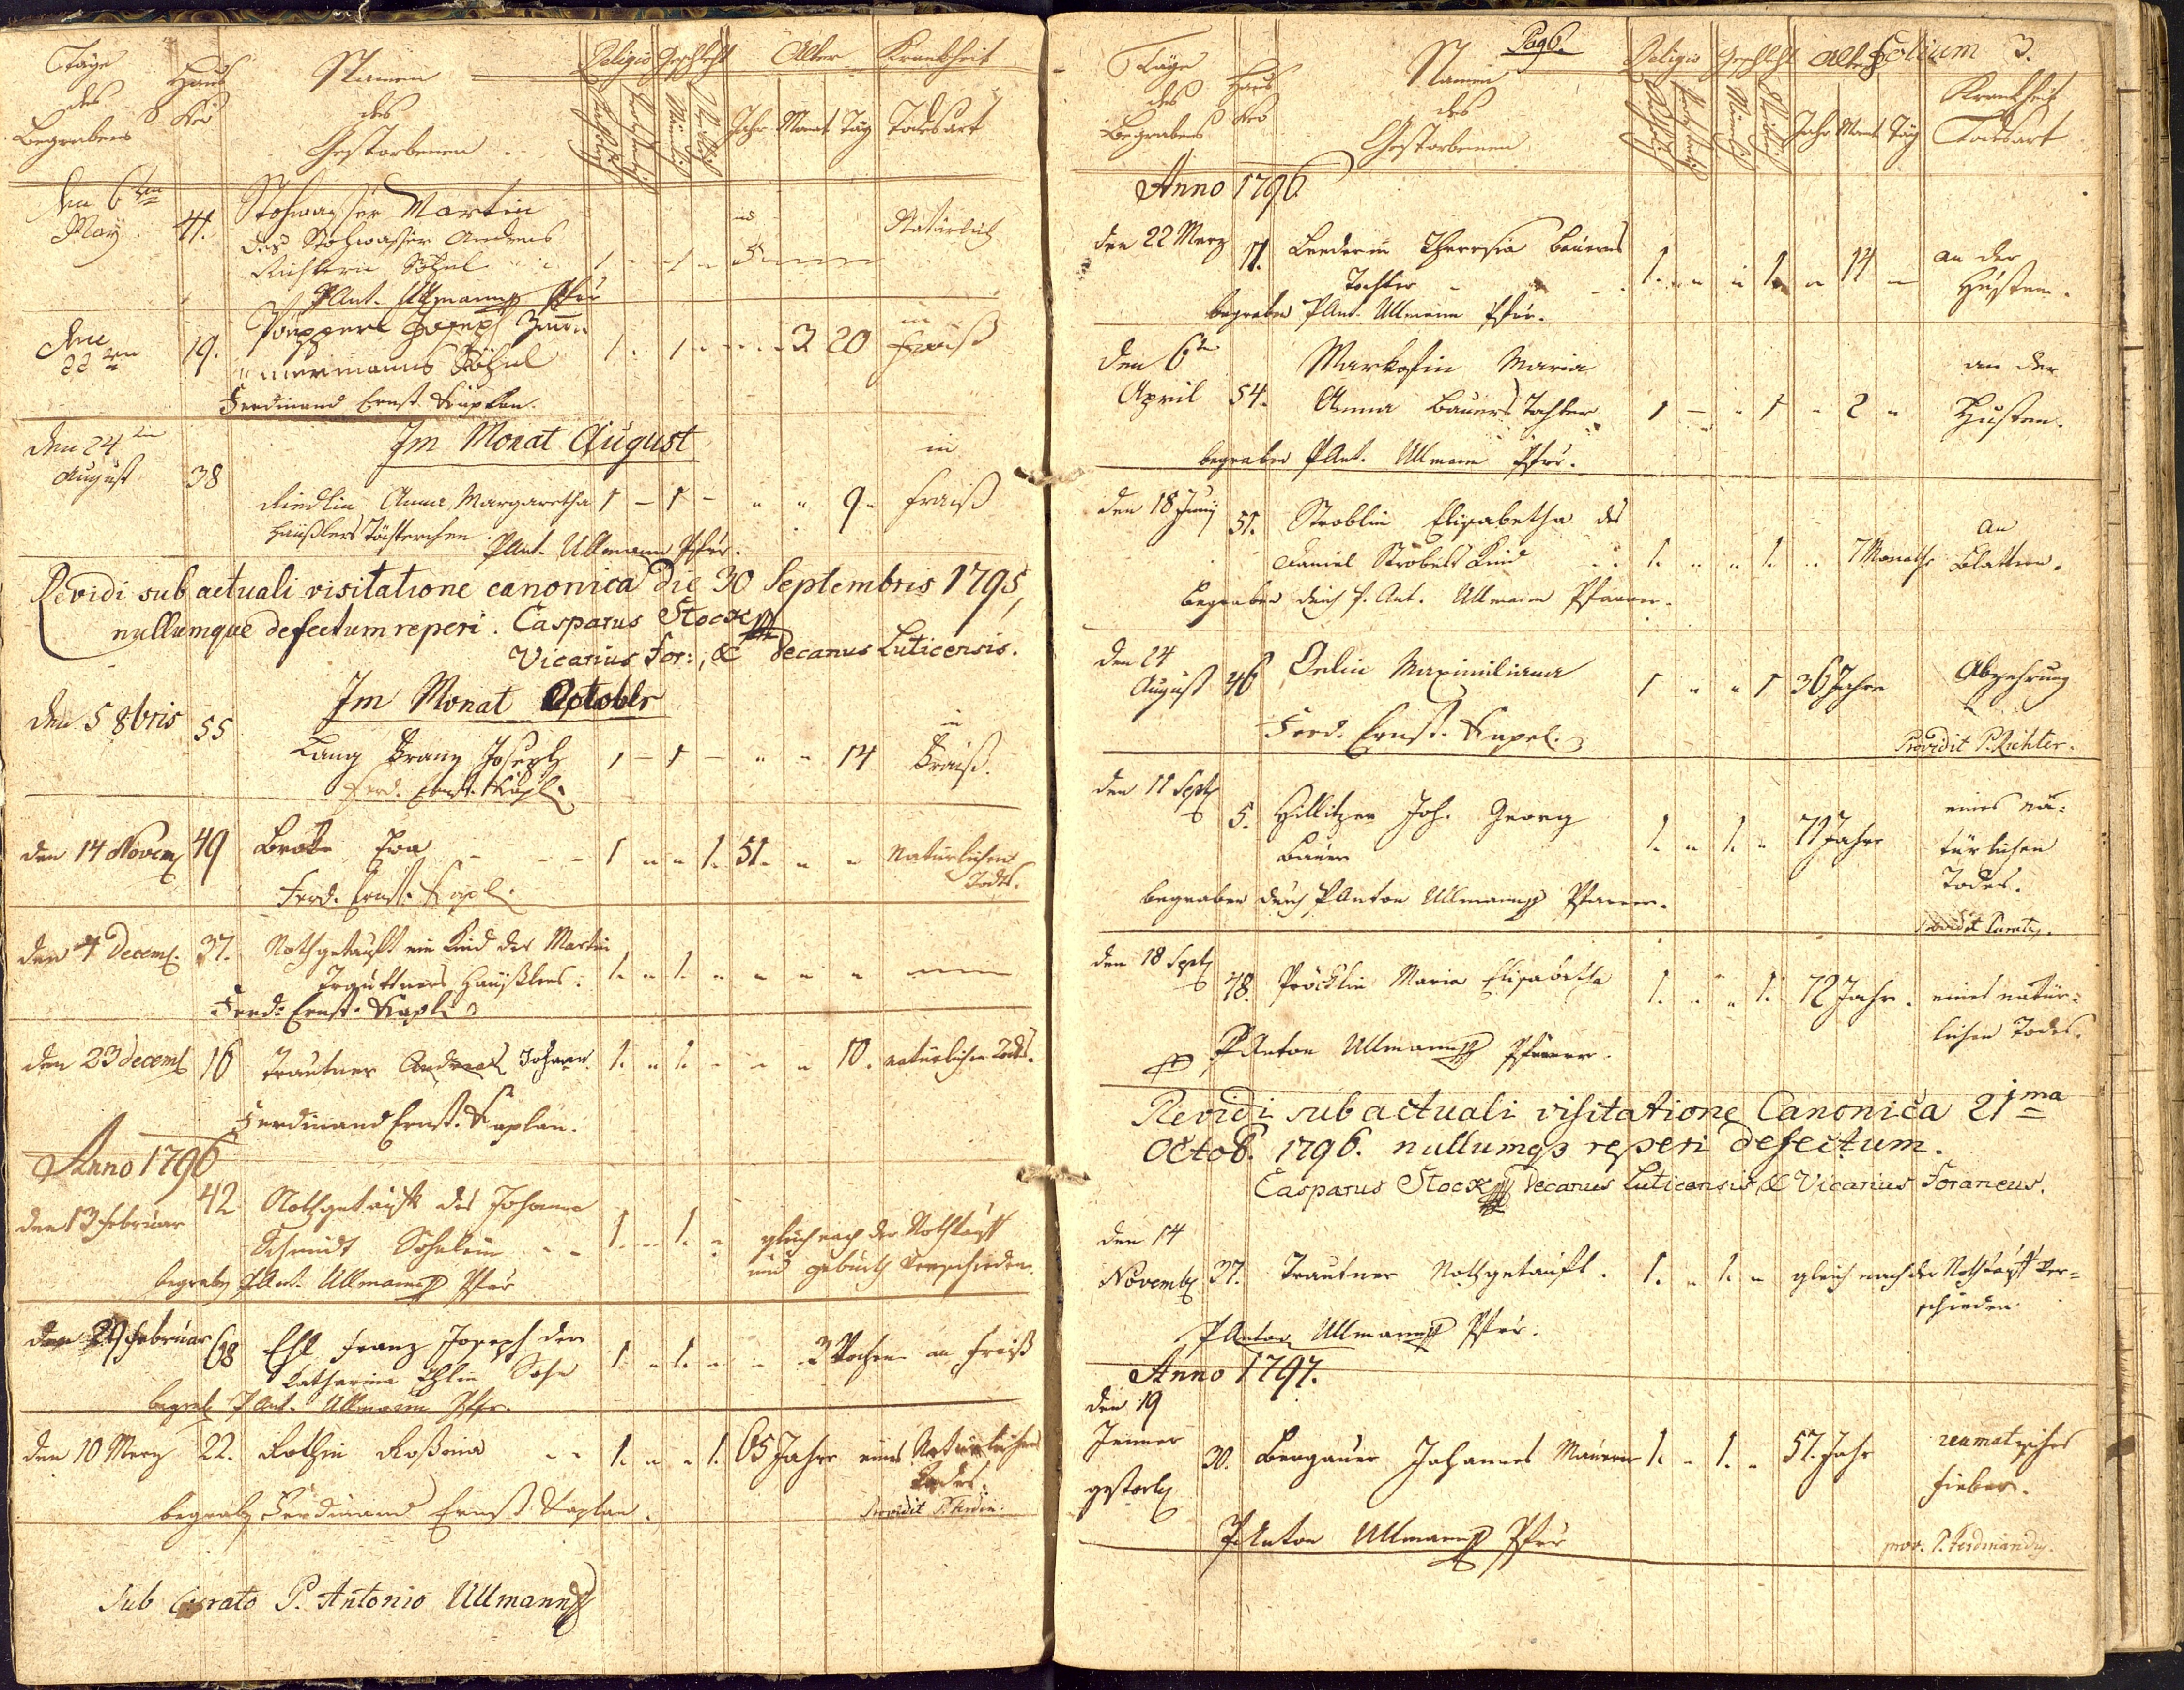 Täge
des
Begrabens
Haus
Nro
Namen
des
Gestorbenen
Religio
Geschlecht
Alter
Krankheit
Katholisch
Männlich
Weiblich
Jahr Monat Täg Todesart
den 6ten
May
41.
Stohwasser Martin
des Stohwasser Andreas
Richters Söhnl
1 - 1 - 5
Natürlich
P Ant. Ullmann Pfr
22ten
19.
Joseph Zim̄er
mermanns Söhnl
1 . 1 - - - 3 20
in
Fraiß
Ferdinand Ernst Kaplan.
den 24ten
August
38
Im Monat August
Riedlin Anna Margaretha 1 - 1 - " " 9 -
in
Fraiß
Häußlers Töchterchen
P Ant. Ullmann Pfr.
Revidi sub actuali visitatione canonica die 30 Septembris 1795,
nullumque defectum reperi. Casparus Stock
Vicarius For:, & Decanus Luticensis.
Im Monat October
den 5 8bris 55
Lang Franz Joseph 1 - 1 - " - 14
in
Fraiß.
Ferd. Ernst. Kapl.
den 14 Novem 49 Eva - - - 1 " " 1. 51. " " Natürlichen
Todts.
Ferd. Ernst. Kapl.
den 4 Decem. 37. Nothgetauft ein Kind des Martin
Trauttners Häußlers: 1. " 1. " " " "
Ferd: Ernst. Kapl
den 23 decem 16 Trautner Andreas Johann. 1. " 1. - - " 10. natürlichen Tods.
Ferdinand Ernst. Kaplan.
Anno 1796
den 13 februar 42 Nothgetauft des Johann
Schmidt Söhnlein - - 1. - 1. "
gleich nach der Nothtauff
und geburth verschieden.
begrab P Ant. Ullmann Pfr
den 29 februar 68 Ehl Franz Joseph der
Katharina Ehlin Sohn 1. " 1. " " 3 Wochen an Fraiß
begrab P Ant. Ullmann Pfr.
den 10 Merz 22. Rothin Rosina - - 1. " " 1. 65 Jahr eines Natürlichen
Todes.
Providit P. Ferdin.
begrab Ferdinand Ernst Kaplan.
Sub Curato P. Antonio Ullmann
Pag 6.
Folium 3.
Täge
des
Begrabens
Haus
Nro
Namen
des
Gestorbenen
Religio
Geschlecht
Alter
Krankheit
Todesart
Männlich
Weiblich
Jahr Monat Täg
Anno 1796
den 22 Merz 11. Theresia Bauers
Tochter 1. " " 1. " 14 -
an der
Husten.
begraben P Ant. Ullmann Pfr.
den 6te
April 54.
Maria
Anna Bauers Tochter 1 - " 1 " 2 "
an der
Husten.
begraben P Ant. Ullmann Pfr.
den 18 Juny
51. Stroblin Elisabetha des
Daniel Strobels Kind 1. " " 1. " 7 Monathe
an
Blattern.
begraben durch P. Ant. Ullmann Pfarrer.
den 24
August 46 Maximiliana 1 " " 1 36 Jahre
Abzehrung
Ferd. Ernst. Kapl.
Providit P. Richter.
den 11 Sept
5. Hillitzer Joh. Georg
Bauer 1. " 1. " 71 Jahr
eines na-
türlichen
Todes.
begraben durch P Anton Ullmann Pfarrer.
Providit Curatus.
den 18 Sept
48. Maria Elisabetha 1. " " 1. 72 Jahr. eines natür-
lichen Todes.
P Anton Ullmann Pfarrer.
Revidi sub actuali visitatione Canonica 21ma
Octob. 1796. nullumq3 reperi defectum.
Casparus Stock Decanus Luticensis, & Vicarius Foraneus.
den 14
Novemb 37. Trautner Nothgetauft. 1. " 1. " gleich nach der Nothtauff ver-
schieden
P Anton Ullmann Pfr.
Anno 1797.
den 19
Jenner
gestorb
30. Bergauer Johannes Maurer 1. - 1. " 57. Jahr
fieber.
P Anton Ullmann Pfr
prov. P. Ferdinandus.